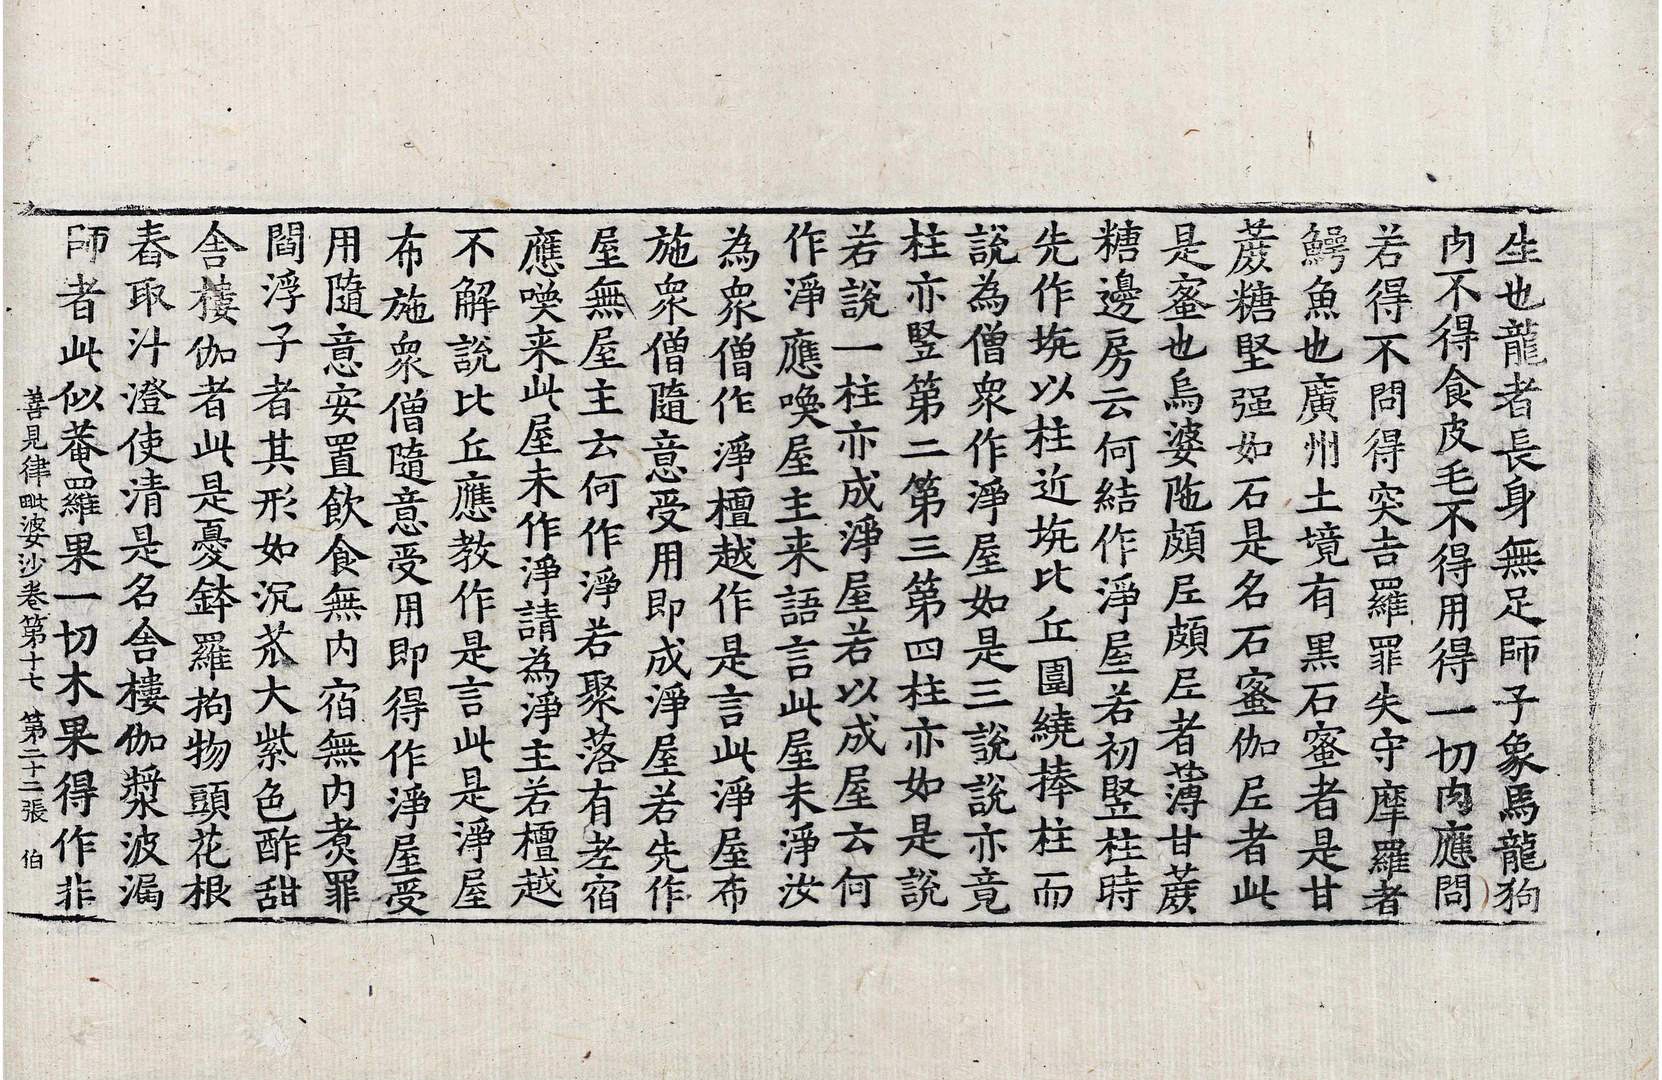 生也龍者長身無足師子象馬龍狗
肉不得食皮毛不得用得一切肉應問
若得不問得突吉羅罪失守摩羅者
鰐魚也廣州土境有黒石蜜者是甘
蔗糖堅强如石是名石蜜伽𡰱者此
是蜜也烏婆陁頗𡰱頗𡰱者薄甘蔗
糖邊房云何結作淨屋若初竪柱時
先作坑以柱近坑比丘圍繞捧柱而
說為僧衆作淨屋如是三說說亦竟
柱亦竪第二第三第四柱亦如是說
若說一柱亦成淨屋若以成屋云何
作淨應喚屋主来語言此屋未淨汝
為衆僧作淨檀越作是言此淨屋布
施衆僧隨意受用即成淨屋若先作
屋無屋主云何作淨若聚落有老宿
應喚来此屋未作淨請為淨主若檀越
不解說比丘應教作是言此是淨屋
布施衆僧隨意受用即得作淨屋受
用隨意安置飲食無内宿無内煑罪
閻浮子者其形如沉苽大紫色酢甜
舍樓伽者此是憂鉢羅拘物頭花根
舂取汁澄使清是名舍樓伽漿波漏
師者此似菴羅果一切木果得作非
善見律毗婆沙卷第十七 第二十二張 伯